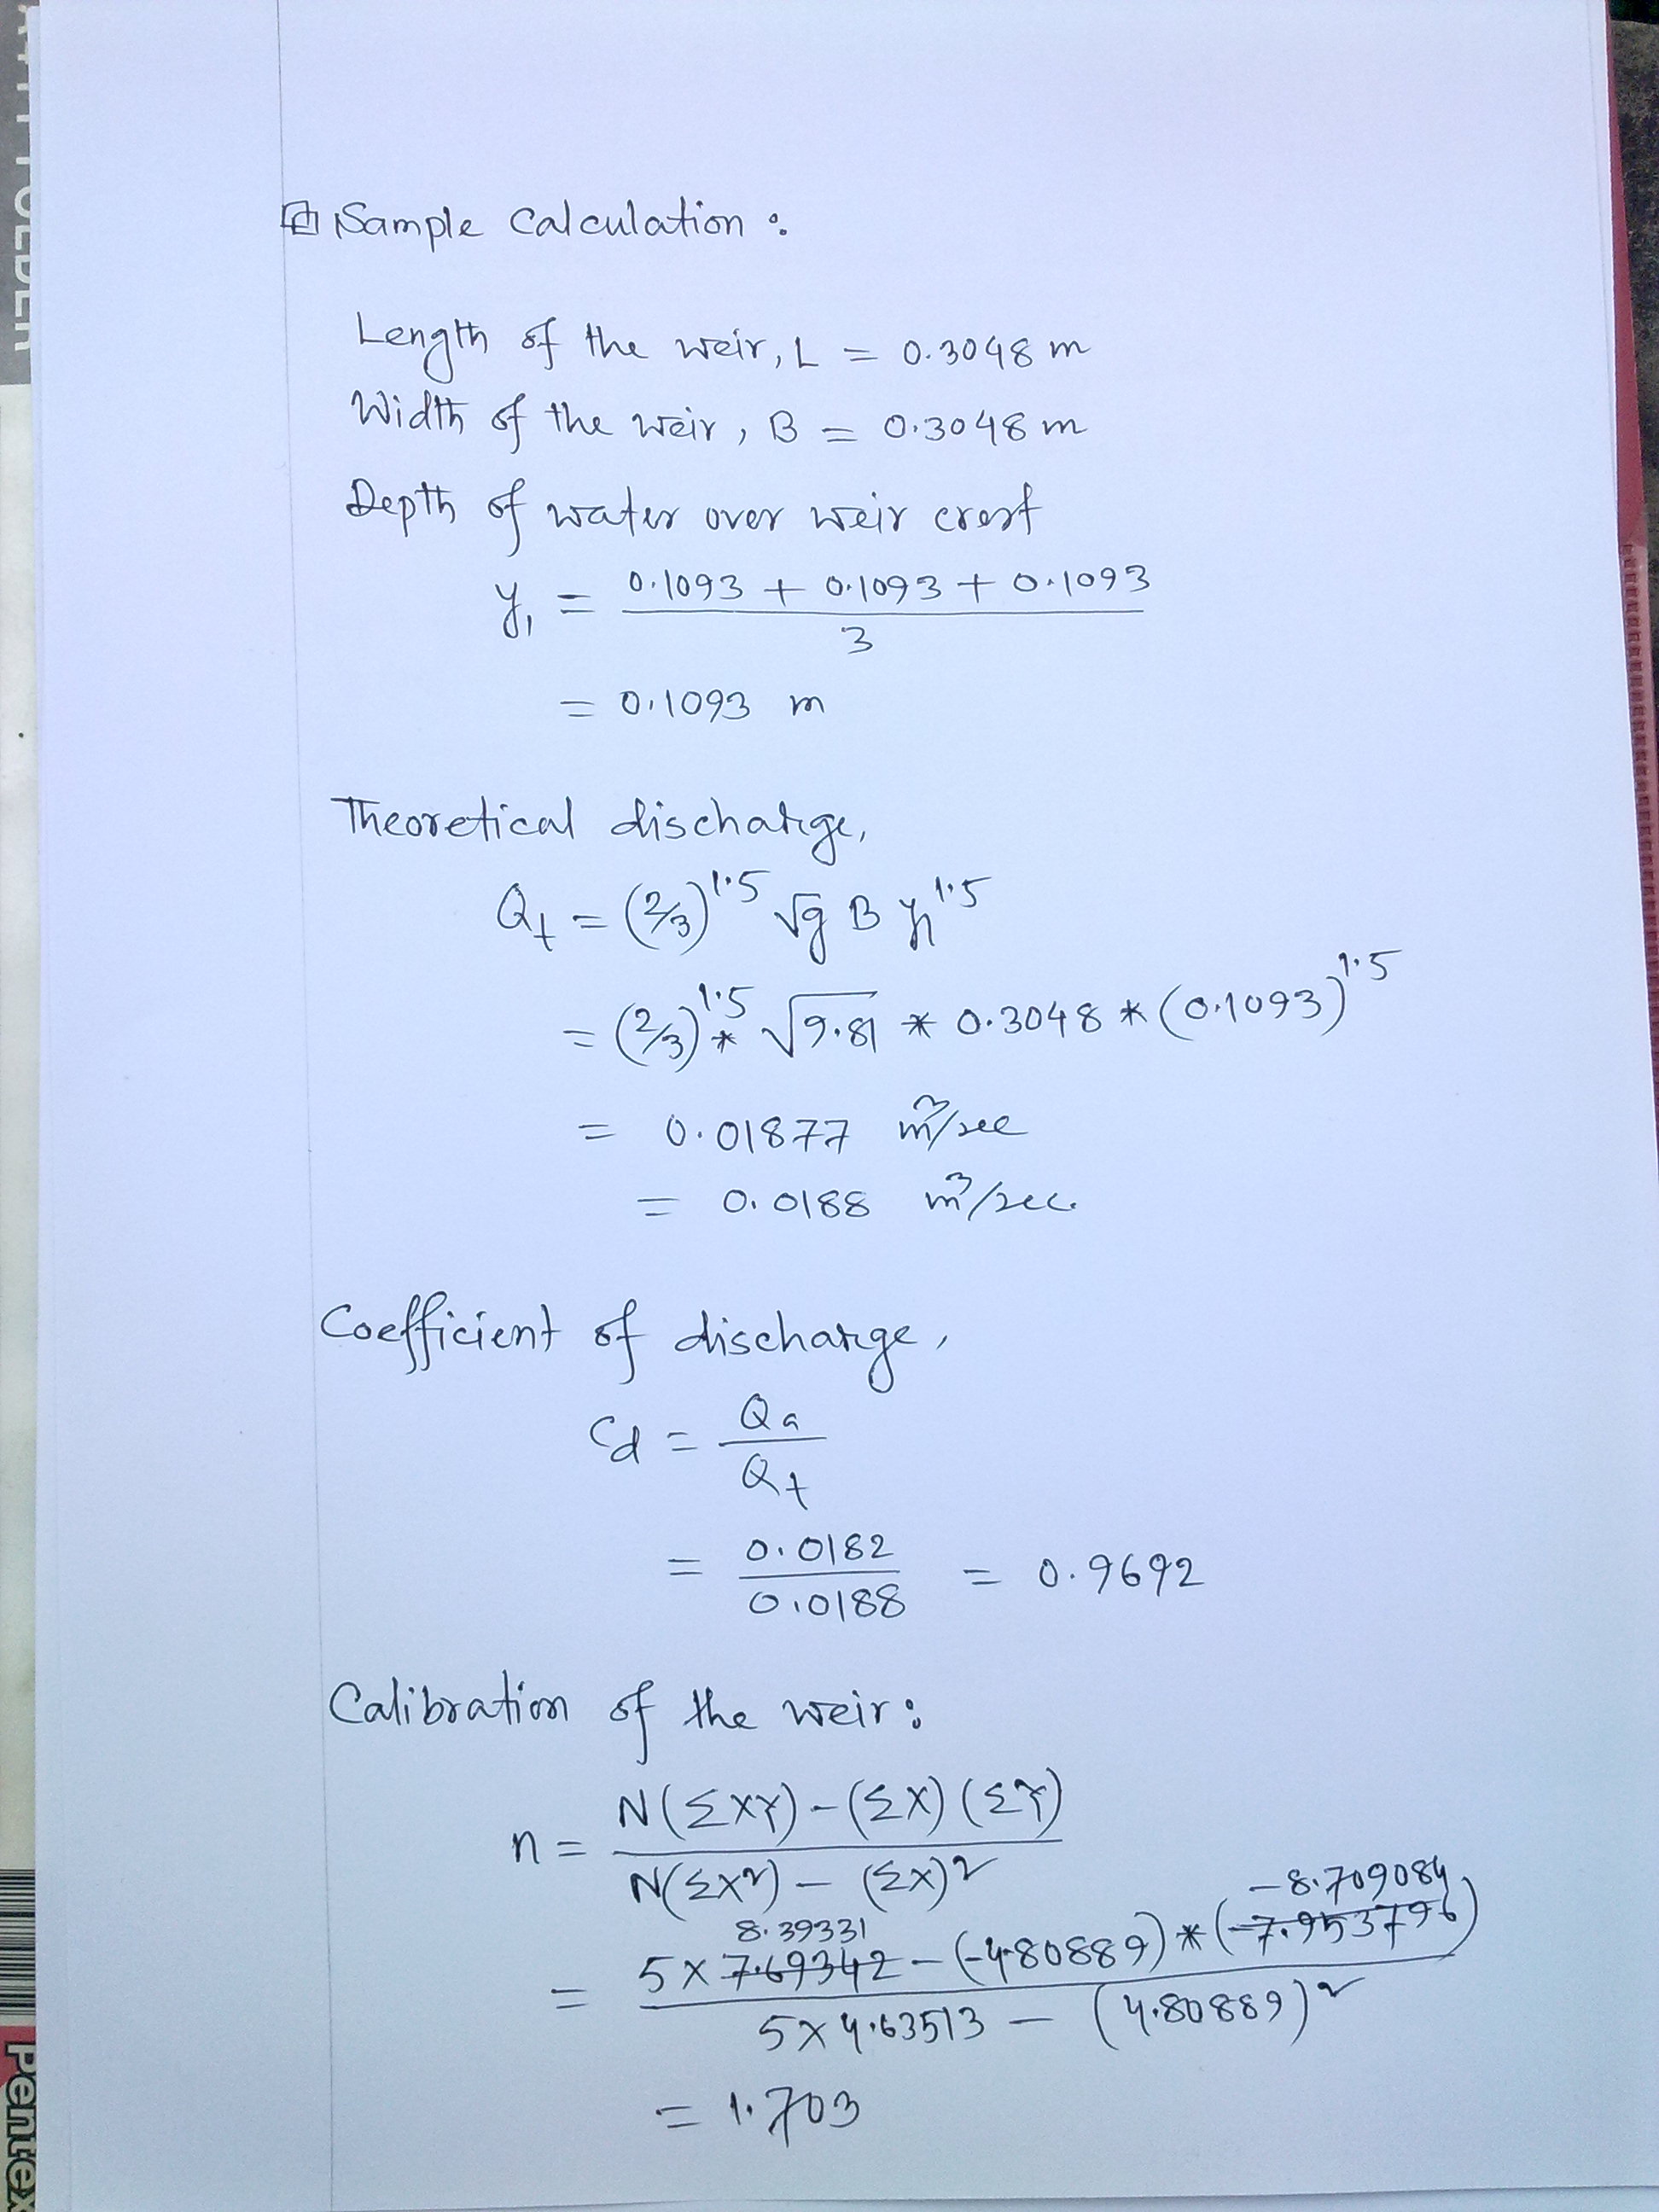 Sample Calculation :
Length of the weir, L = 0.3048 m
Width of the weir, B = 0.3048 m
Depth of water over weir crest
y₁ = (0.1093 + 0.1093 + 0.1093) / 3
= 0.1093 m
Theoretical discharge,
Qt = (2/3)^1.5 √g B y₁^1.5
= (2/3)^1.5 * √9.81 * 0.3048 * (0.1093)^1.5
= 0.01877 m³/sec
= 0.0188 m³/sec.
Coefficient of discharge,
Cd = Qa / Qt
= 0.0182 / 0.0188 = 0.9692
Calibration of the weir :
n = N(ΣXY) - (ΣX) (ΣY) / N(ΣX²) - (ΣX)²
8.39331 -8.709084
= 5 × 7.69342 - (-4.80889) * (-7.953796) / 5 × 4.63513 - (4.80889)²
= 1.703
Pentex